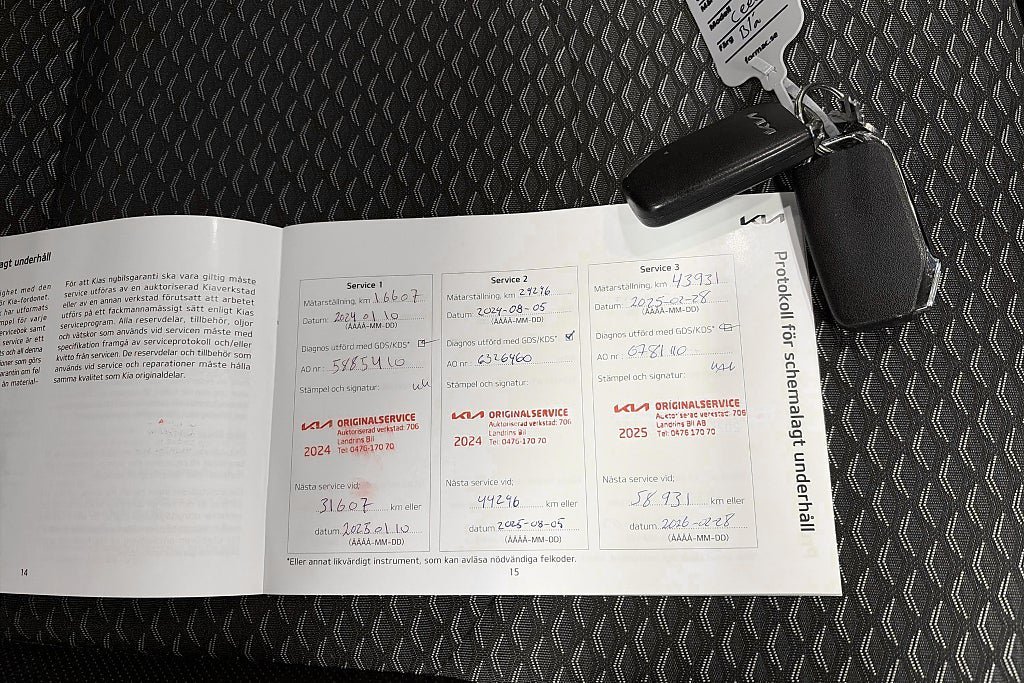 Modell Ceed
Färg Blå
formac.se
KIA
KIA
agt underhåll
ghet med den
r Kia-fordonet.
har utformats
mpel för varje
ervicebok samt
service är ett
s och all denna
ioner som görs
arantin om fel
än material-
För att Kias nybilsgaranti ska vara giltig måste
service utföras av en auktoriserad Kiaverkstad
eller av en annan verkstad förutsatt att arbetet
utförs på ett fackmannamässigt sätt enligt Kias
serviceprogram. Alla reservdelar, tillbehör, oljor
och vätskor som används vid servicen måste med
specifikation framgå av serviceprotokoll och/eller
kvitto från servicen. De reservdelar och tillbehör som
används vid service och reparationer måste hålla
samma kvalitet som Kia originaldelar.
14
Protokoll för schemalagt underhåll
Service 1
Mätarställning, km 16607
Datum: 2024 01 10
(ÅÅÅÅ-MM-DD)
Diagnos utförd med GDS/KDS*
AO nr: 5885410
Stämpel och signatur:
KIA ORIGINALSERVICE
Auktoriserad verkstad: 706
Landrins Bil
2024 Tel: 0476-170 70
Nästa service vid:
31607 km eller
datum 2025 01 10
(ÅÅÅÅ-MM-DD)
Service 2
Mätarställning, km 29296
Datum: 2024-08-05
(ÅÅÅÅ-MM-DD)
Diagnos utförd med GDS/KDS*
AO nr: 6326460
Stämpel och signatur:
KIA ORIGINALSERVICE
Auktoriserad verkstad: 706
Landrins Bil
2024 Tel: 0476-170 70
Nästa service vid:
44296 km eller
datum 2025-08-05
(ÅÅÅÅ-MM-DD)
Service 3
Mätarställning, km 43931
Datum: 2025-02-28
(ÅÅÅÅ-MM-DD)
Diagnos utförd med GDS/KDS*
AO nr: 6781110
Stämpel och signatur:
KIA ORIGINALSERVICE
Auktoriserad verkstad: 706
Landrins Bil AB
2025 Tel: 0476 170 70
Nästa service vid:
58931 km eller
datum 2026-02-28
(ÅÅÅÅ-MM-DD)
*Eller annat likvärdigt instrument, som kan avläsa nödvändiga felkoder.
15